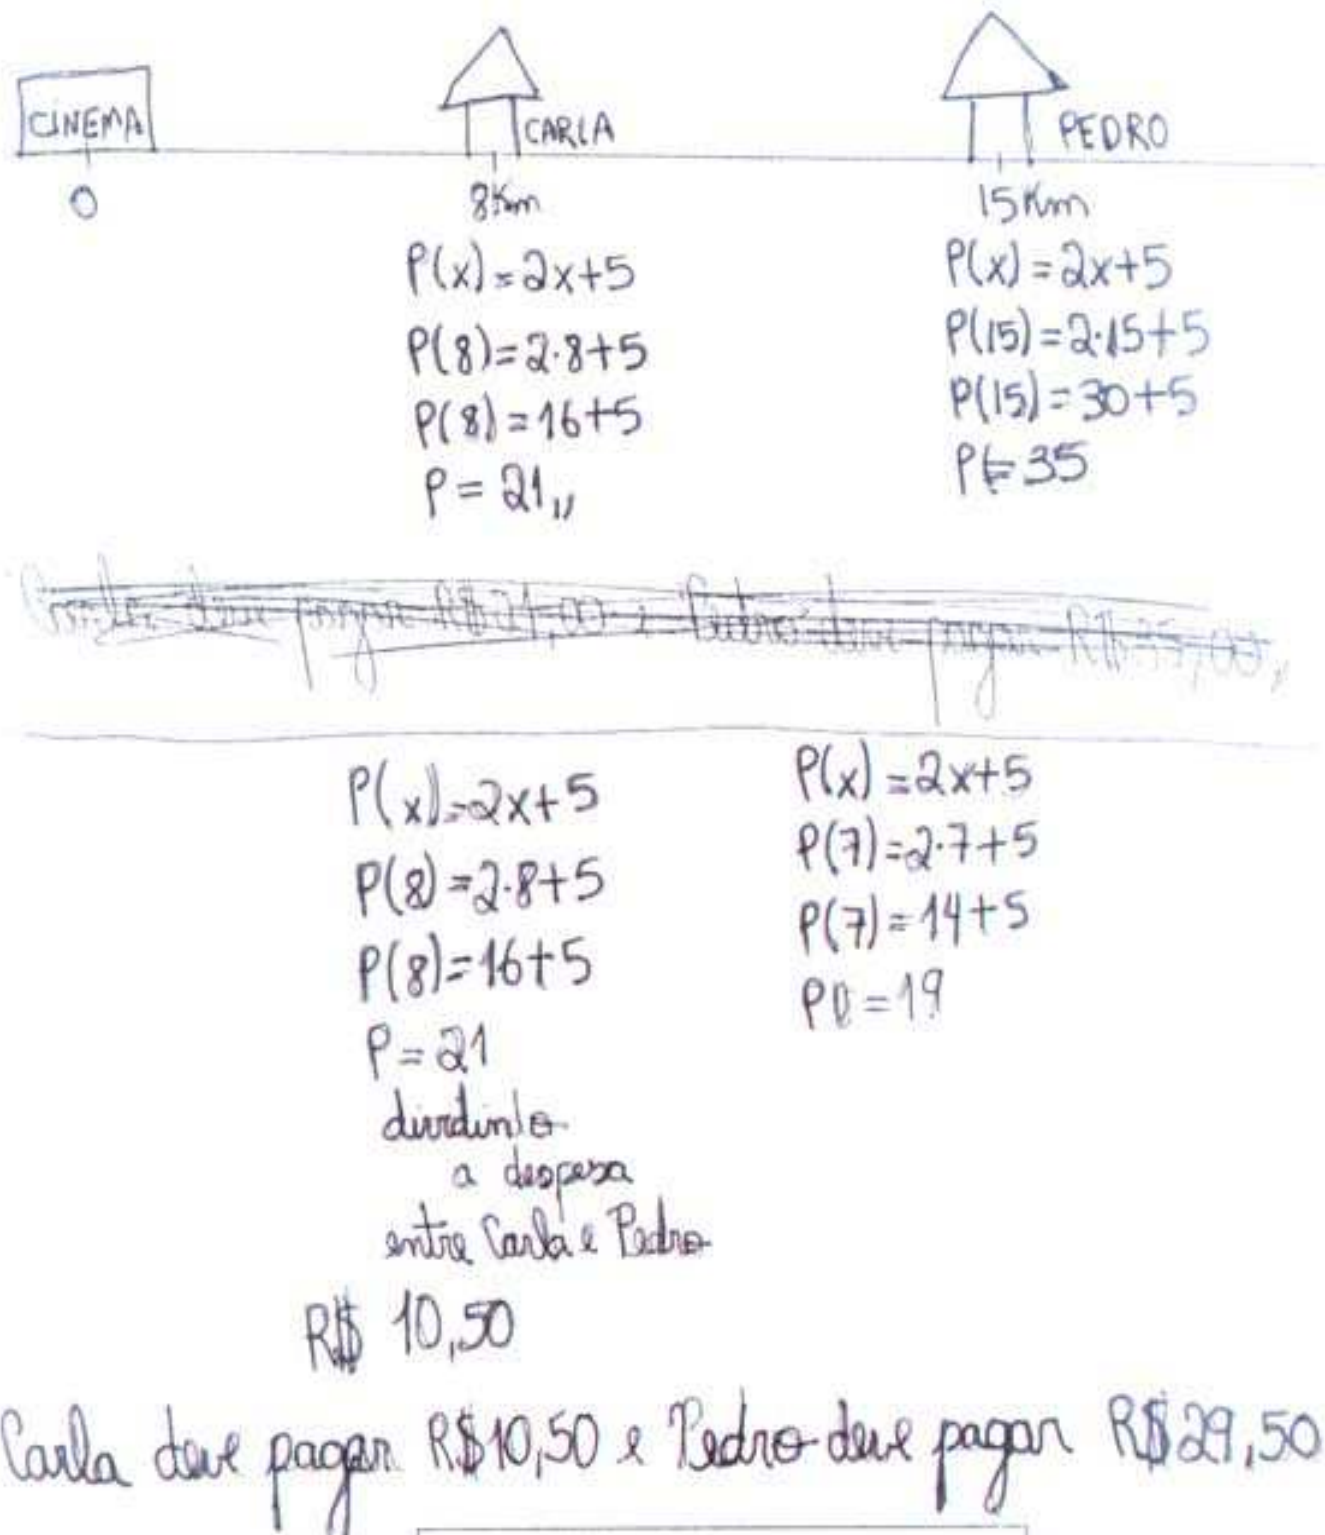 CINEMA
CARLA
PEDRO
0
8Km
15Km
P(x)=2x+5
P(8)=2·8+5
P(8)=16+5
P=21,,
P(x)=2x+5
P(15)=2·15+5
P(15)=30+5
P=35
deve pagar R$21,00 e Pedro deve pagar R$35,00,,
P(x)=2x+5
P(8)=2·8+5
P(8)=16+5
P=21
dividindo
a despesa
entre Carla e Pedro
R$ 10,50
P(x)=2x+5
P(7)=2·7+5
P(7)=14+5
P=19
Carla deve pagar R$10,50 e Pedro deve pagar R$29,50